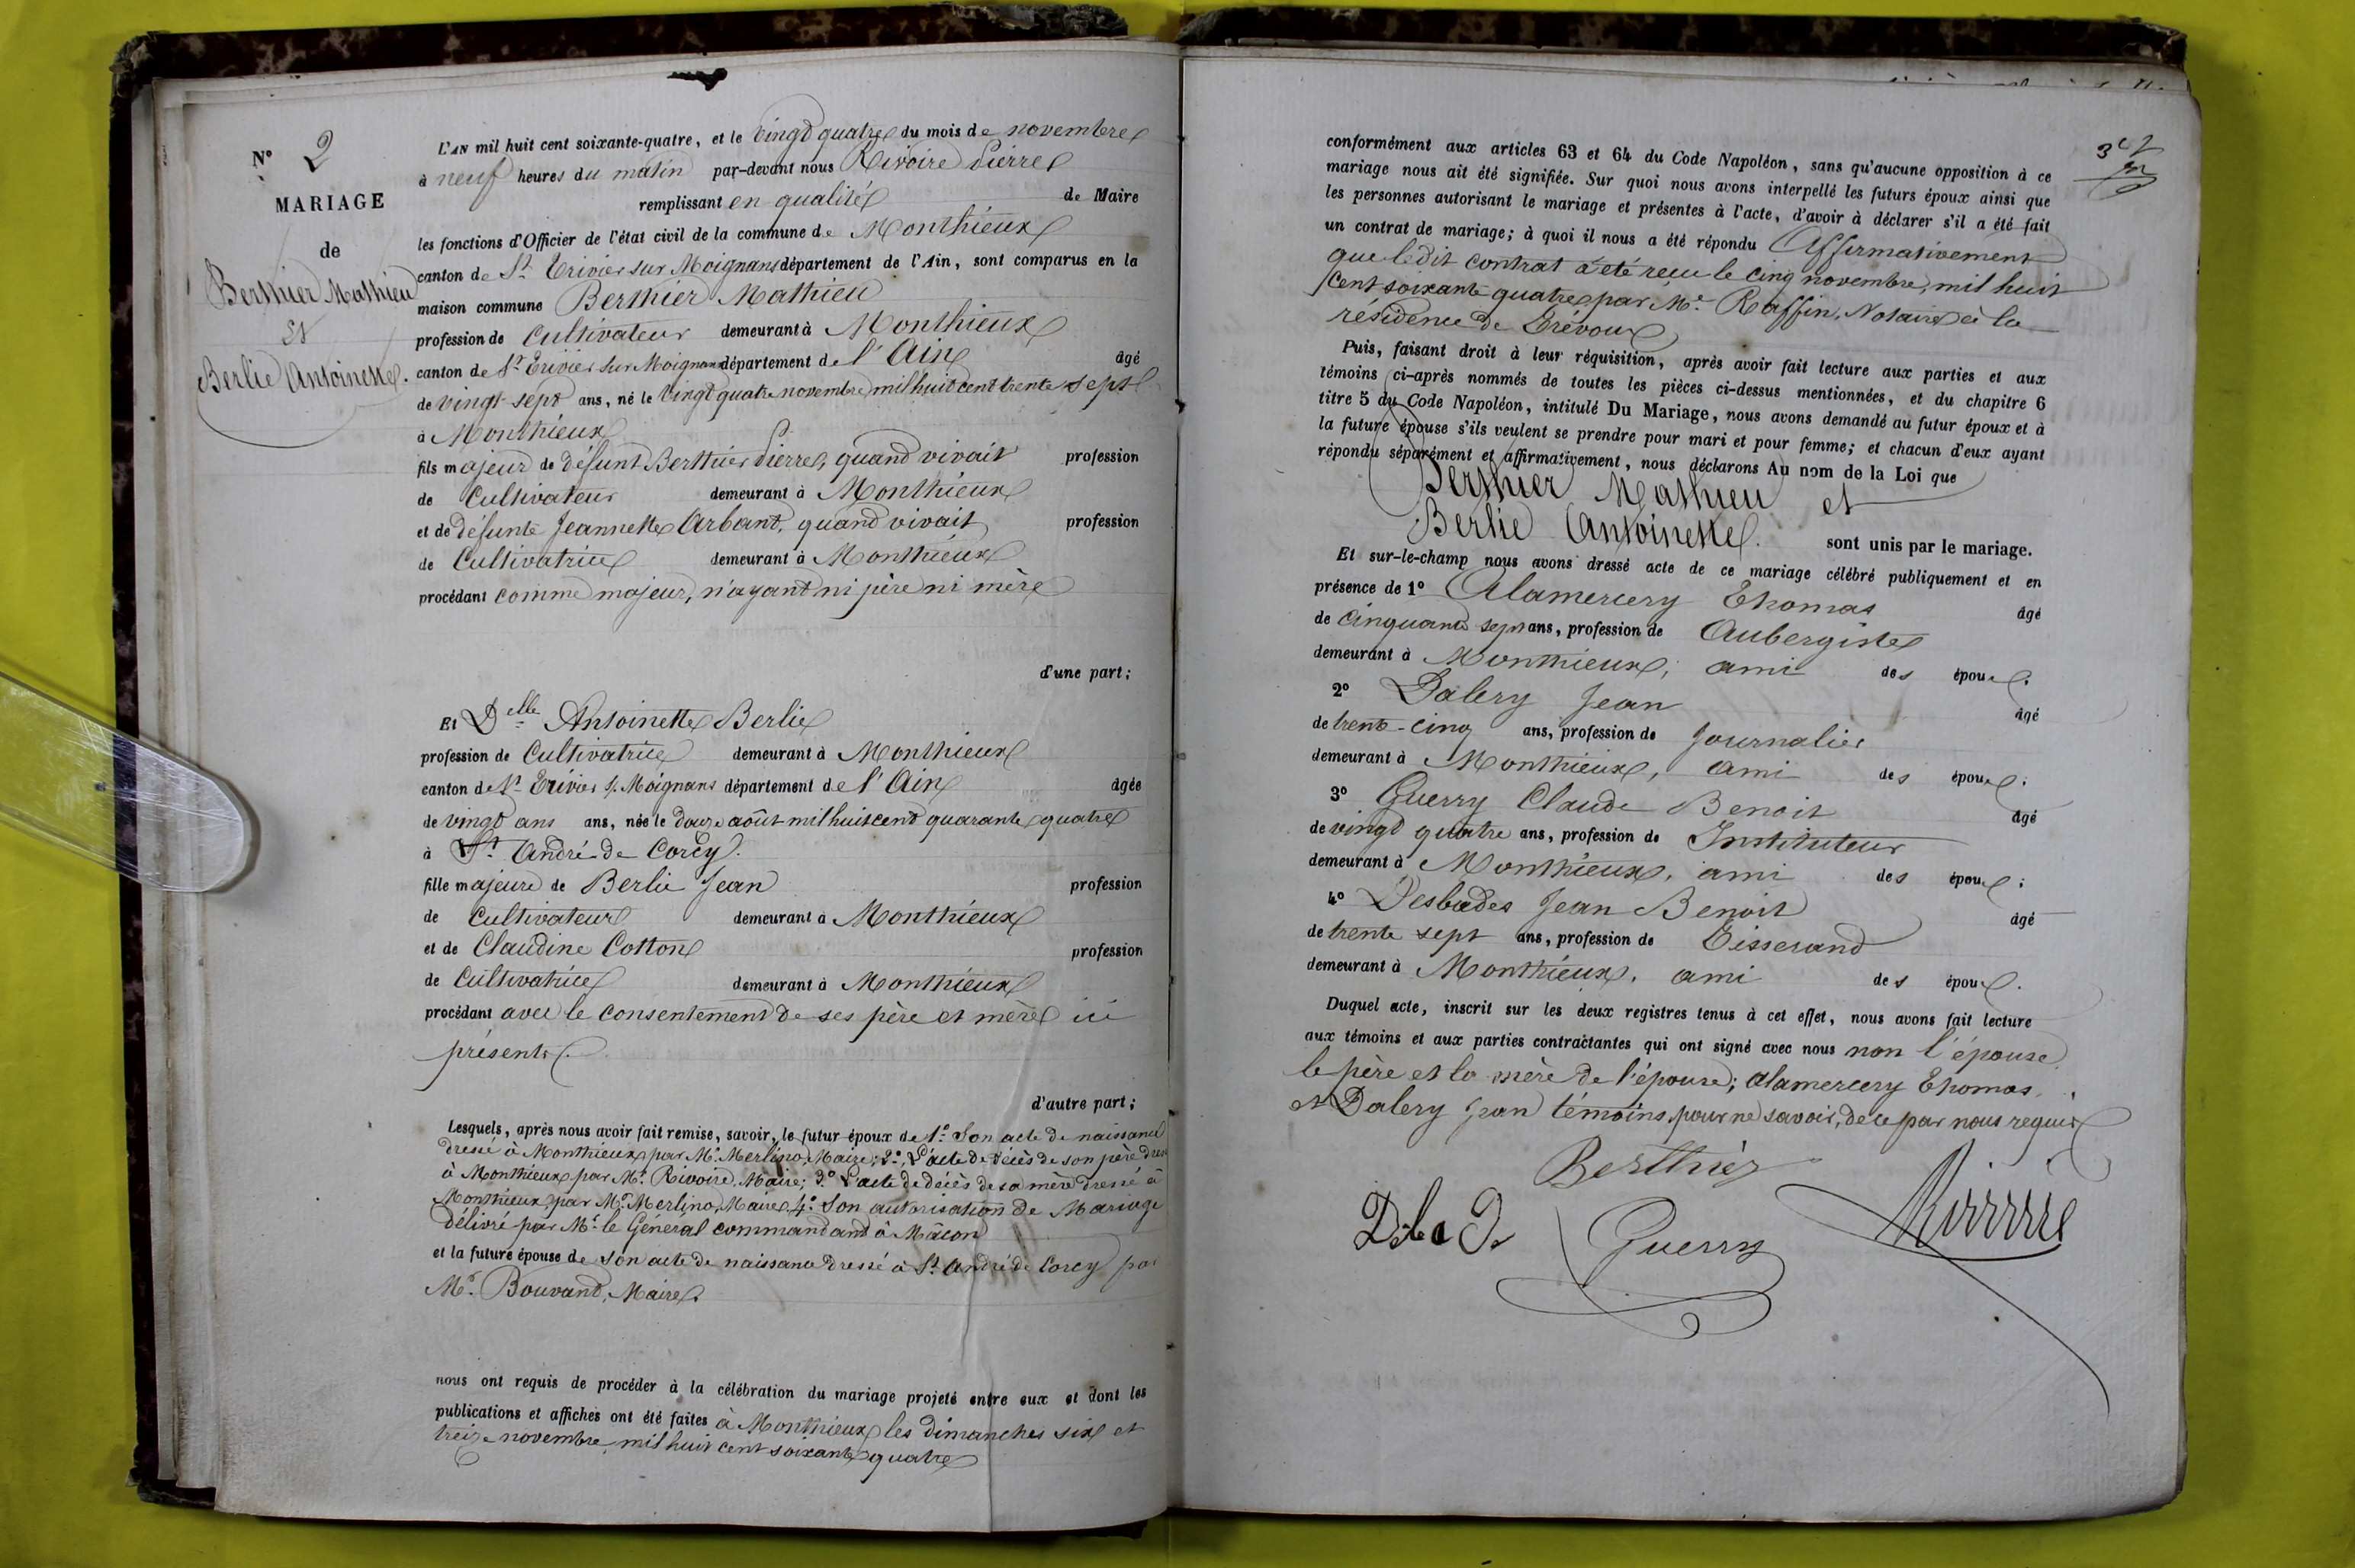 N° 2
MARIAGE
de
Berthier Mathieu
et
Berlie Antoinette.
L'AN mil huit cent soixante-quatre, et le vingt quatre du mois de novembre
à neuf heures du matin par-devant nous Rivoire Pierre
remplissant en qualité de Maire
les fonctions d'Officier de l'état civil de la commune de Monthieux
canton de St Trivier sur Moignans département de l'Ain, sont comparus en la
maison commune Berthier Mathieu
profession de Cultivateur demeurant à Monthieux
canton de St Trivier sur Moignans département de l'Ain âgé
de vingt sept ans, né le vingt quatre novembre mil huit cent trente sept
à Monthieux
fils majeur de défunt Berthier Pierre, quand vivait profession
de Cultivateur demeurant à Monthieux
et de défunte Jeannette Arbant, quand vivait profession
de Cultivatrice demeurant à Monthieux
procédant comme majeur, n'ayant ni père ni mère
d'une part;
Et Delle Antoinette Berlie
profession de Cultivatrice demeurant à Monthieux
canton de St Trivier s/. Moignans département de l'Ain âgée
de vingt ans ans, née le douze août mil huit cent quarante quatre
à St André de Corcy.
fille majeure de Berlie Jean profession
de Cultivateur demeurant à Monthieux
et de Claudine Cotton profession
de Cultivatrice demeurant à Monthieux
procédant avec le consentement de ses père et mère ici
présents.
d'autre part;
Lesquels, après nous avoir fait remise, savoir, le futur époux de 1°. Son acte de naissance
dressé à Monthieux par Mr. Merlino, Maire; 2°. L'acte de décès de son père dressé
à Monthieux par Mr. Rivoire, Maire; 3°. L'acte de décès de sa mère dressé à
Monthieux par Mr. Merlino, Maire, 4°. Son autorisation de Mariage
délivré par Mr. le Général commandant à Mâcon
et la future épouse de Son acte de naissance dressé à St. André de Corcy par
Mr. Bouvand, Maire.
nous ont requis de procéder à la célébration du mariage projeté entre eux et dont les
publications et affiches ont été faites à Monthieux les dimanches six et
treize novembre mil huit cent soixante quatre
conformément aux articles 63 et 64 du Code Napoléon, sans qu'aucune opposition à ce
mariage nous ait été signifiée. Sur quoi nous avons interpellé les futurs époux ainsi que
les personnes autorisant le mariage et présentes à l'acte, d'avoir à déclarer s'il a été fait
un contrat de mariage; à quoi il nous a été répondu Affirmativement
que le dit contrat a été reçu le cinq novembre, mil huit
cent soixante quatre par Me. Raffin, Notaire à la
résidence de Trévoux
Puis, faisant droit à leur réquisition, après avoir fait lecture aux parties et aux
témoins ci-après nommés de toutes les pièces ci-dessus mentionnées, et du chapitre 6
titre 5 du Code Napoléon, intitulé Du Mariage, nous avons demandé au futur époux et à
la future épouse s'ils veulent se prendre pour mari et pour femme; et chacun d'eux ayant
répondu séparément et affirmativement, nous déclarons Au nom de la Loi que
Berthier Mathieu et
Berlie Antoinette. sont unis par le mariage.
Et sur-le-champ nous avons dressé acte de ce mariage célébré publiquement et en
présence de 1° Alamercery Thomas âgé
de cinquante sept ans, profession de Aubergiste
demeurant à Monthieux, ami des époux.
2° Dalery Jean âgé
de trente-cinq ans, profession de Journalier
demeurant à Monthieux, ami des époux.
3° Guerry Claude Benoit âgé
de vingt quatre ans, profession de Instituteur
demeurant à Monthieux, ami des époux;
4° Jean Benoit âgé
de trente sept ans, profession de Tisserand
demeurant à Monthieux, ami des époux.
Duquel acte, inscrit sur les deux registres tenus à cet effet, nous avons fait lecture
aux témoins et aux parties contractantes qui ont signé avec nous non l'épouse,
le père et la mère de l'épouse; Alamercery Thomas,
et Dalery Jean témoins, pour ne savoir, de ce par nous requis
Berthier
Guerry
Rivoire